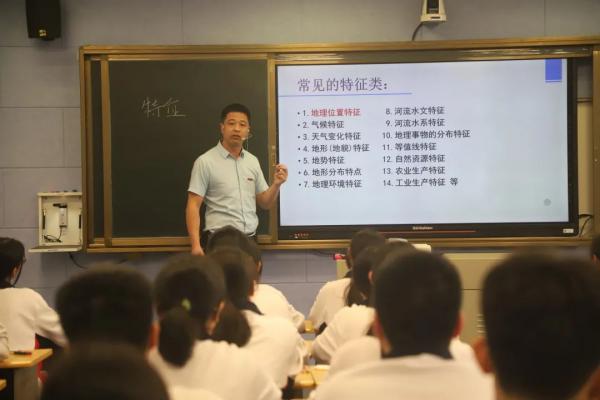 特征
常见的特征类：
• 1. 地理位置特征
• 2. 气候特征
• 3. 天气变化特征
• 4. 地形(地貌)特征
• 5. 地势特征
• 6. 地形分布特点
• 7. 地理环境特征
8. 河流水文特征
9. 河流水系特征
10. 地理事物的分布特征
11. 等值线特征
12. 自然资源特征
13. 农业生产特征
14. 工业生产特征 等